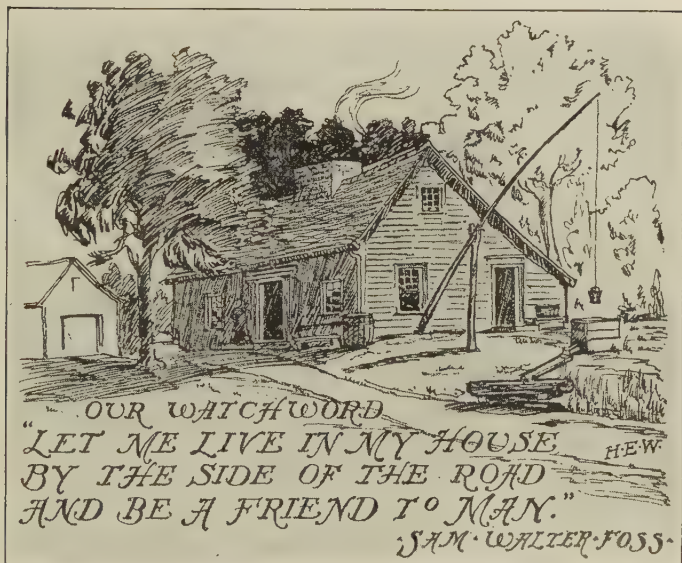 OUR WATCHWORD
"LET ME LIVE IN MY HOUSE
BY THE SIDE OF THE ROAD
AND BE A FRIEND TO MAN."
·SAM·WALTER·FOSS·
H·E·W·